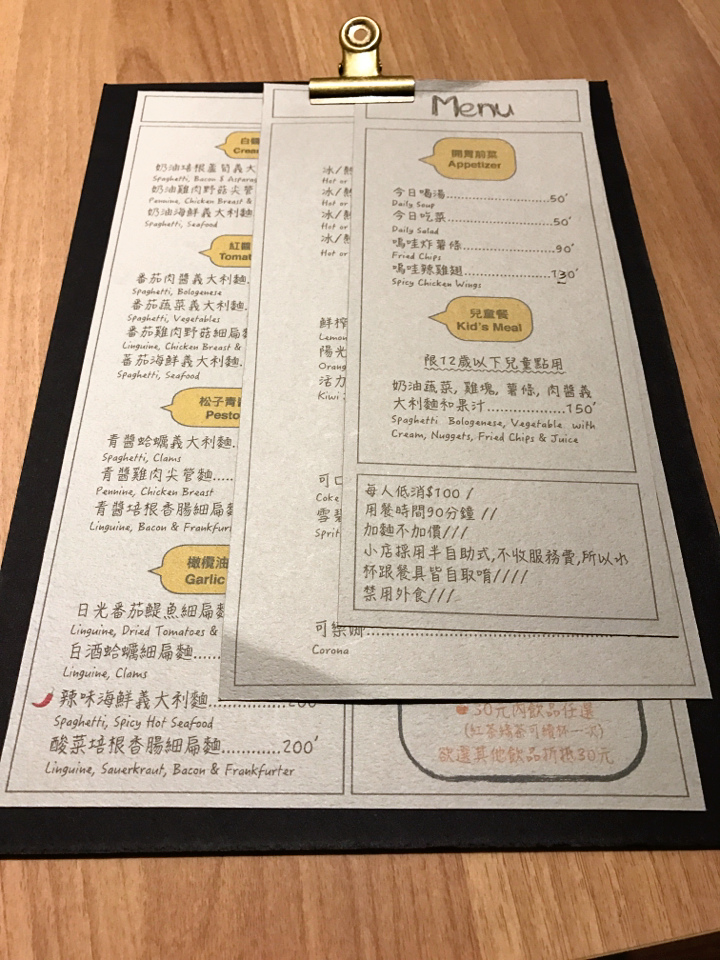 Menu
開胃前菜
Appetizer
今日喝湯........................50'
Daily Soup
今日吃菜........................50'
Daily Salad
嗚哇炸薯條......................90'
Fried Chips
嗚哇辣雞翅......................130'
Spicy Chicken Wings
兒童餐
Kid's Meal
限12歲以下兒童點用
奶油蔬菜, 雞塊, 薯條, 肉醬義
大利麵和果汁....................150'
Spaghetti Bologenese, Vegetable with
Cream, Nuggets, Fried Chips & Juice
每人低消$100 /
用餐時間90分鐘 //
加麵不加價///
小店採用半自助式,不收服務費,所以水
杯跟餐具皆自取唷////
禁用外食///
冰/
Hot or
冰/
Hot or
冰/
Hot or
冰/
Hot or
鮮榨
Lemon
陽光
Orang
活力
Kiwi
可口
Coke
雪碧
Sprit
可樂娜
Corona
白醬
Crea
奶油培根蘆筍義大
Spaghetti, Bacon & Asparag
奶油雞肉野菇尖管
Pennine, Chicken Breast &
奶油海鮮義大利麵
Spaghetti, Seafood
紅醬
Tomat
番茄肉醬義大利麵.
Spaghetti, Bologenese
番茄蔬菜義大利麵.
Spaghetti, Vegetables
番茄雞肉野菇細扁
Linguine, Chicken Breast &
番茄海鮮義大利麵.
Spaghetti, Seafood
松子青醬
Pesto
青醬蛤蠣義大利麵.
Spaghetti, Clams
青醬雞肉尖管麵.....
Pennine, Chicken Breast
青醬培根香腸細扁麵
Linguine, Bacon & Frankfurt
橄欖油
Garlic
日光番茄鯷魚細扁麵
Linguine, Dried Tomatoes &
白酒蛤蠣細扁麵.....
Linguine, Clams
辣味海鮮義大利麵............200'
Spaghetti, Spicy Hot Seafood
酸菜培根香腸細扁麵............200'
Linguine, Sauerkraut, Bacon & Frankfurter
30元內飲品任選
(紅茶綠茶可續杯一次)
欲選其他飲品折抵30元